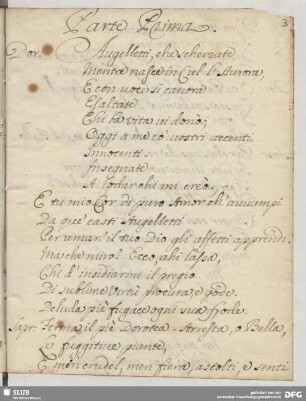 3
Parte Prima.
Dor: Augelletti, che scherzate
Mentre nasce in Ciel l'Aurora,
E con voce si canora
Esaltate
Chi la vita vi donò;
Oggi a me co' vostri accenti
Innocenti
Insegnate
A lodar chi mi creò.
E tu mio Cor di puro Amor ch'avvampi
Da que' casti Augelletti
Per amar il tuo Dio gli affetti apprendi.
Ma che miro! Ecco, ahi lassa,
Chi d'insidiarmi il pregio
Di sublime Virtù procura, e gode.
Deluda piè fugace ogni sua frode.
Sapr: Ferma il piè Dorotea. Arresta, o Bella,
Le fuggitive piante,
E men crudel, men fiera, ascolti, e senti
SLUB